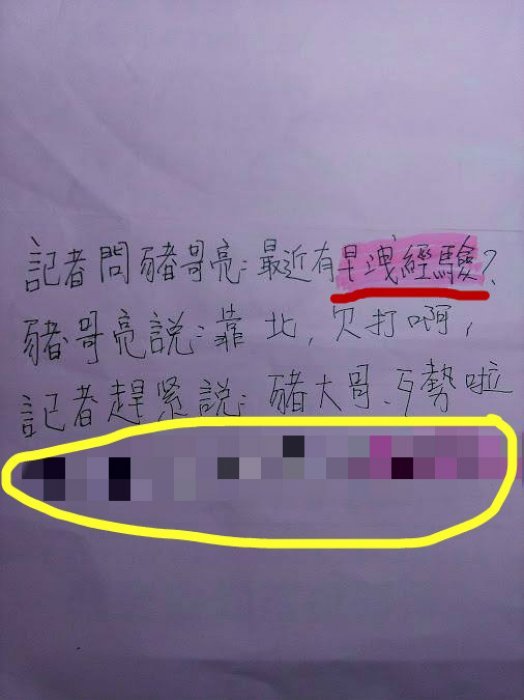 記者問豬哥亮:最近有早洩經驗?
豬哥亮說:靠北,欠打啊,
記者趕緊說:豬大哥、歹勢啦